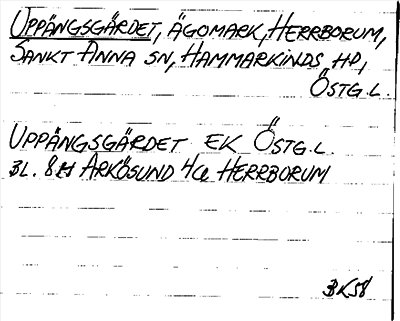 UPPÄNGSGÄRDET, ÄGOMARK, HERRBORUM,
SANKT ANNA SN, HAMMARKINDS HD,
ÖSTG.L.
UPPÄNGSGÄRDET EK ÖSTG.L.
BL. 8H ARKÖSUND 4a HERRBORUM
BK58